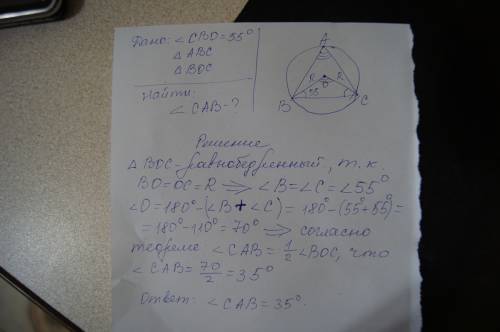 Дано: ∠CBO=55°
△ABC
△BOC
Найти:
∠CAB-?
A
R R
O
55
B C
Решение
△BOC-равнобедренный, т.к.
BO=OC=R ⟹ ∠B=∠C=∠55°
∠O=180°-(∠B+∠C)=180°-(55°+55°)=
=180°-110°=70° ⟹ согласно
теореме ∠CAB=1/2∠BOC, что
∠CAB=70/2=35°
Ответ: ∠CAB=35°.